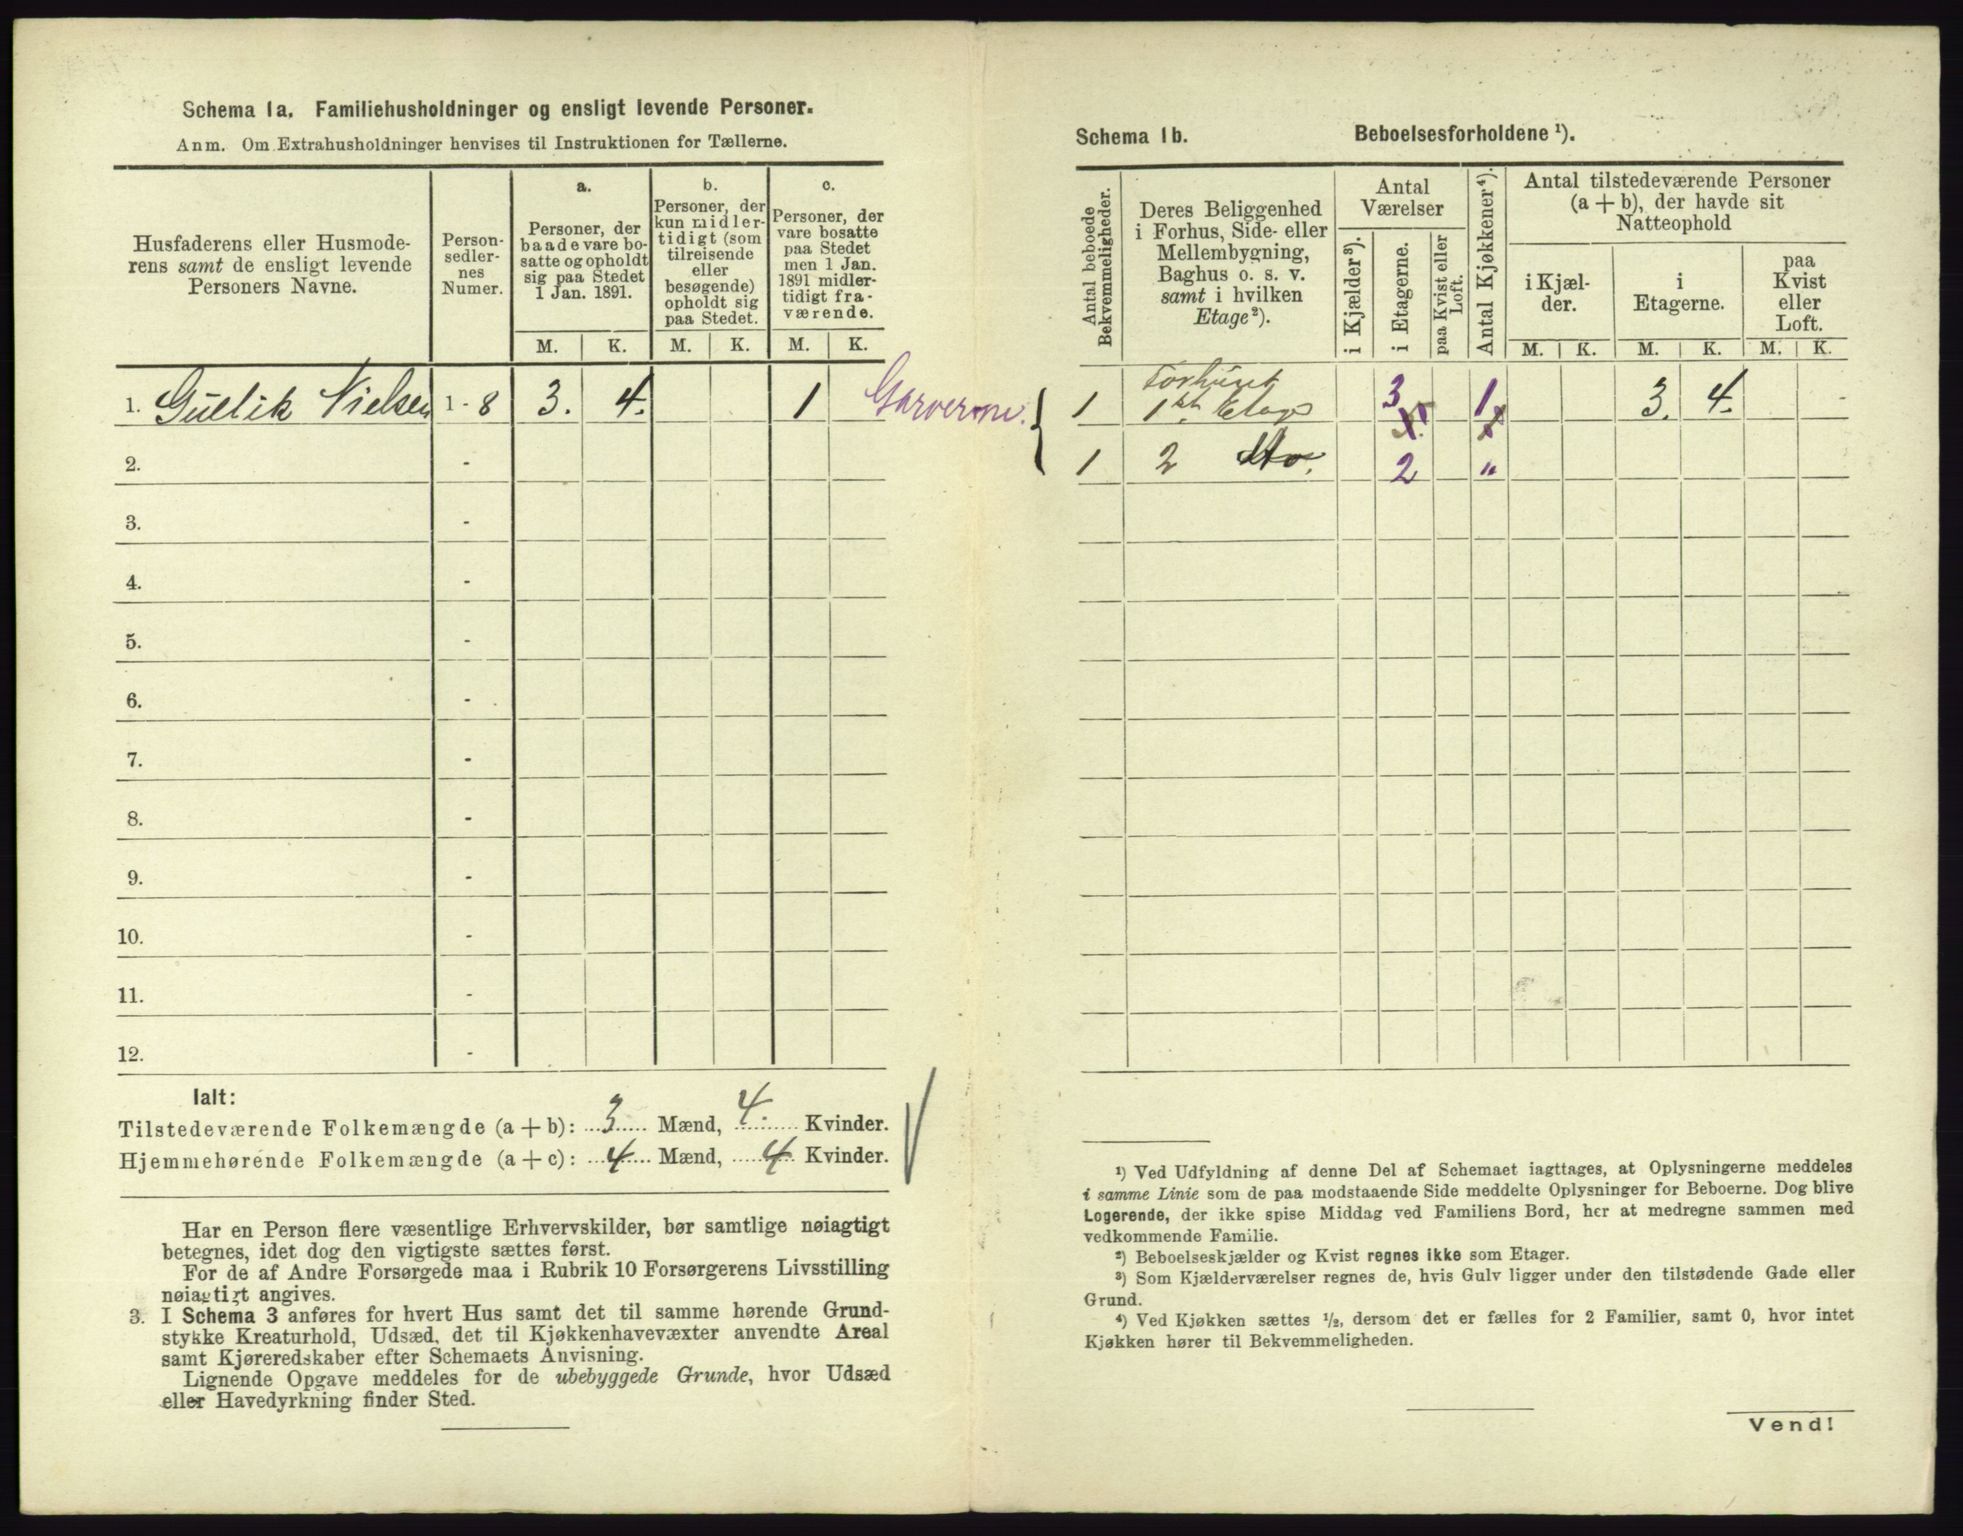 Schema 1a. Familiehusholdninger og ensligt levende Personer.
Anm. Om Extrahusholdninger henvises til Instruktionen for Tællerne.
Husfaderens eller Husmode-
rens samt de ensligt levende
Personers Navne.
Person-
sedler-
nes
Numer.
a.
Personer, der
baade vare bo-
satte og opholdt
sig paa Stedet
1 Jan. 1891.
b.
Personer, der
kun midler-
tidigt (som
tilreisende
eller
besøgende)
opholdt sig
paa Stedet.
c.
Personer, der
vare bosatte
paa Stedet
men 1 Jan.
1891 midler-
tidigt fra-
værende.
M. K. M. K. M. K.
1. Gullik Nielsen 1 - 8 3. 4. 1
2. -
3. -
4. -
5. -
6. -
7. -
8. -
9. -
10. -
11. -
12. -
Ialt:
Tilstedeværende Folkemængde (a + b): 3 Mænd, 4. Kvinder.
Hjemmehørende Folkemængde (a + c): 4 Mænd, 4 Kvinder.
Har en Person flere væsentlige Erhvervskilder, bør samtlige nøiagtigt
betegnes, idet dog den vigtigste sættes først.
For de af Andre Forsørgede maa i Rubrik 10 Forsørgerens Livsstilling
nøiagtigt angives.
3. I Schema 3 anføres for hvert Hus samt det til samme hørende Grund-
stykke Kreaturhold, Udsæd, det til Kjøkkenhavevæxter anvendte Areal
samt Kjøreredskaber efter Schemaets Anvisning.
Lignende Opgave meddeles for de ubebyggede Grunde, hvor Udsæd
eller Havedyrkning finder Sted.
Schema 1b. Beboelsesforholdene ¹).
Antal beboede
Bekvemmeligheder.
Deres Beliggenhed
i Forhus, Side- eller
Mellembygning,
Baghus o. s. v.
samt i hvilken
Etage²).
Antal
Værelser
i Kjælder³).
i Etagerne.
paa Kvist eller
Loft.
Antal Kjøkkener⁴).
Antal tilstedeværende Personer
(a + b), der havde sit
Natteophold
i Kjæl-
der.
i
Etagerne.
paa
Kvist
eller
Loft.
M. K. M. K. M. K.
Forhuset
1 1ste Etage 3 1 3. 4.
1 2 2 "
¹) Ved Udfyldning af denne Del af Schemaet iagttages, at Oplysningerne meddeles
i samme Linie som de paa modstaaende Side meddelte Oplysninger for Beboerne. Dog blive
Logerende, der ikke spise Middag ved Familiens Bord, her at medregne sammen med
vedkommende Familie.
²) Beboelseskjælder og Kvist regnes ikke som Etager.
³) Som Kjælderværelser regnes de, hvis Gulv ligger under den tilstødende Gade eller
Grund.
⁴) Ved Kjøkken sættes ½, dersom det er fælles for 2 Familier, samt 0, hvor intet
Kjøkken hører til Bekvemmeligheden.
Vend!